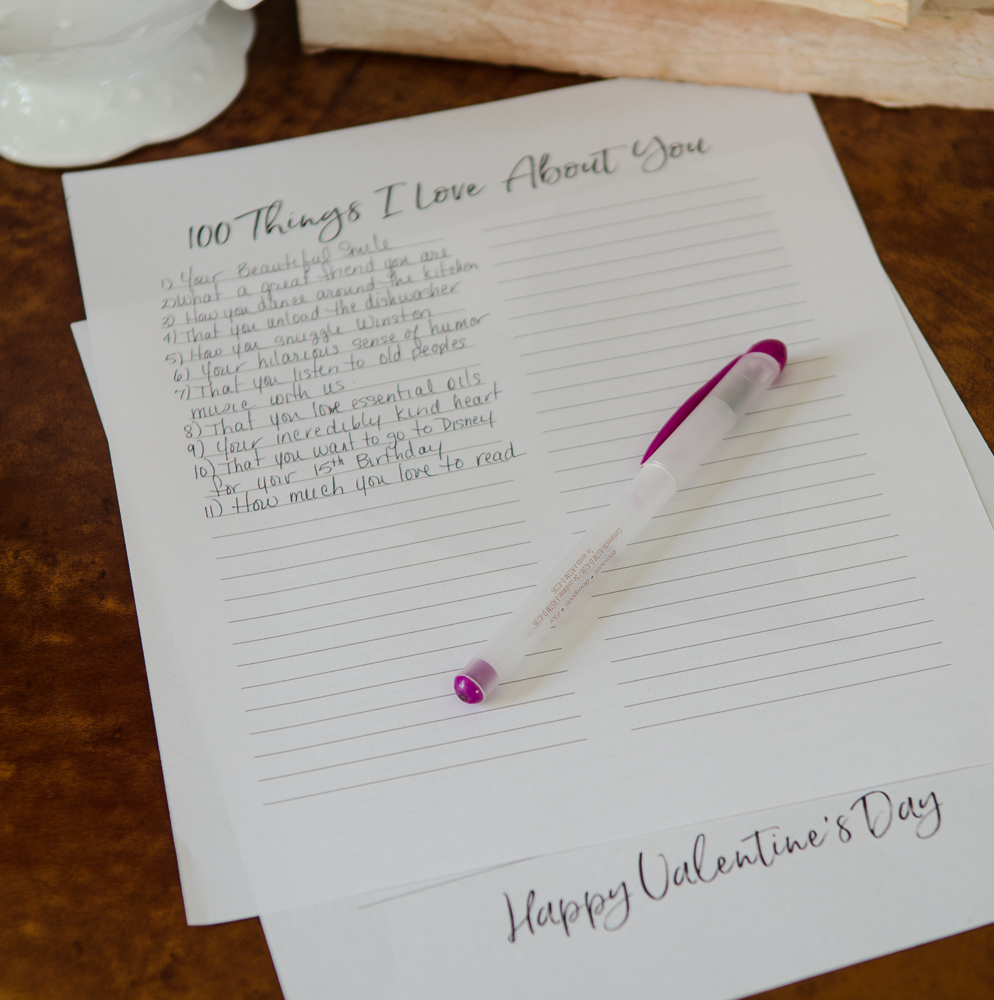 100 Things I Love About You
1) Your Beautiful Smile
2) What a great friend you are
3) How you dance around the kitchen
4) That you unload the dishwasher
5) How you snuggle Winston
6) Your hilarious sense of humor
7) That you listen to old peoples
music with us.
8) That you love essential oils
9) Your incredibly kind heart
10) That you want to go to Disney
for your 15th Birthday
11) How much you love to read
Happy Valentine's Day